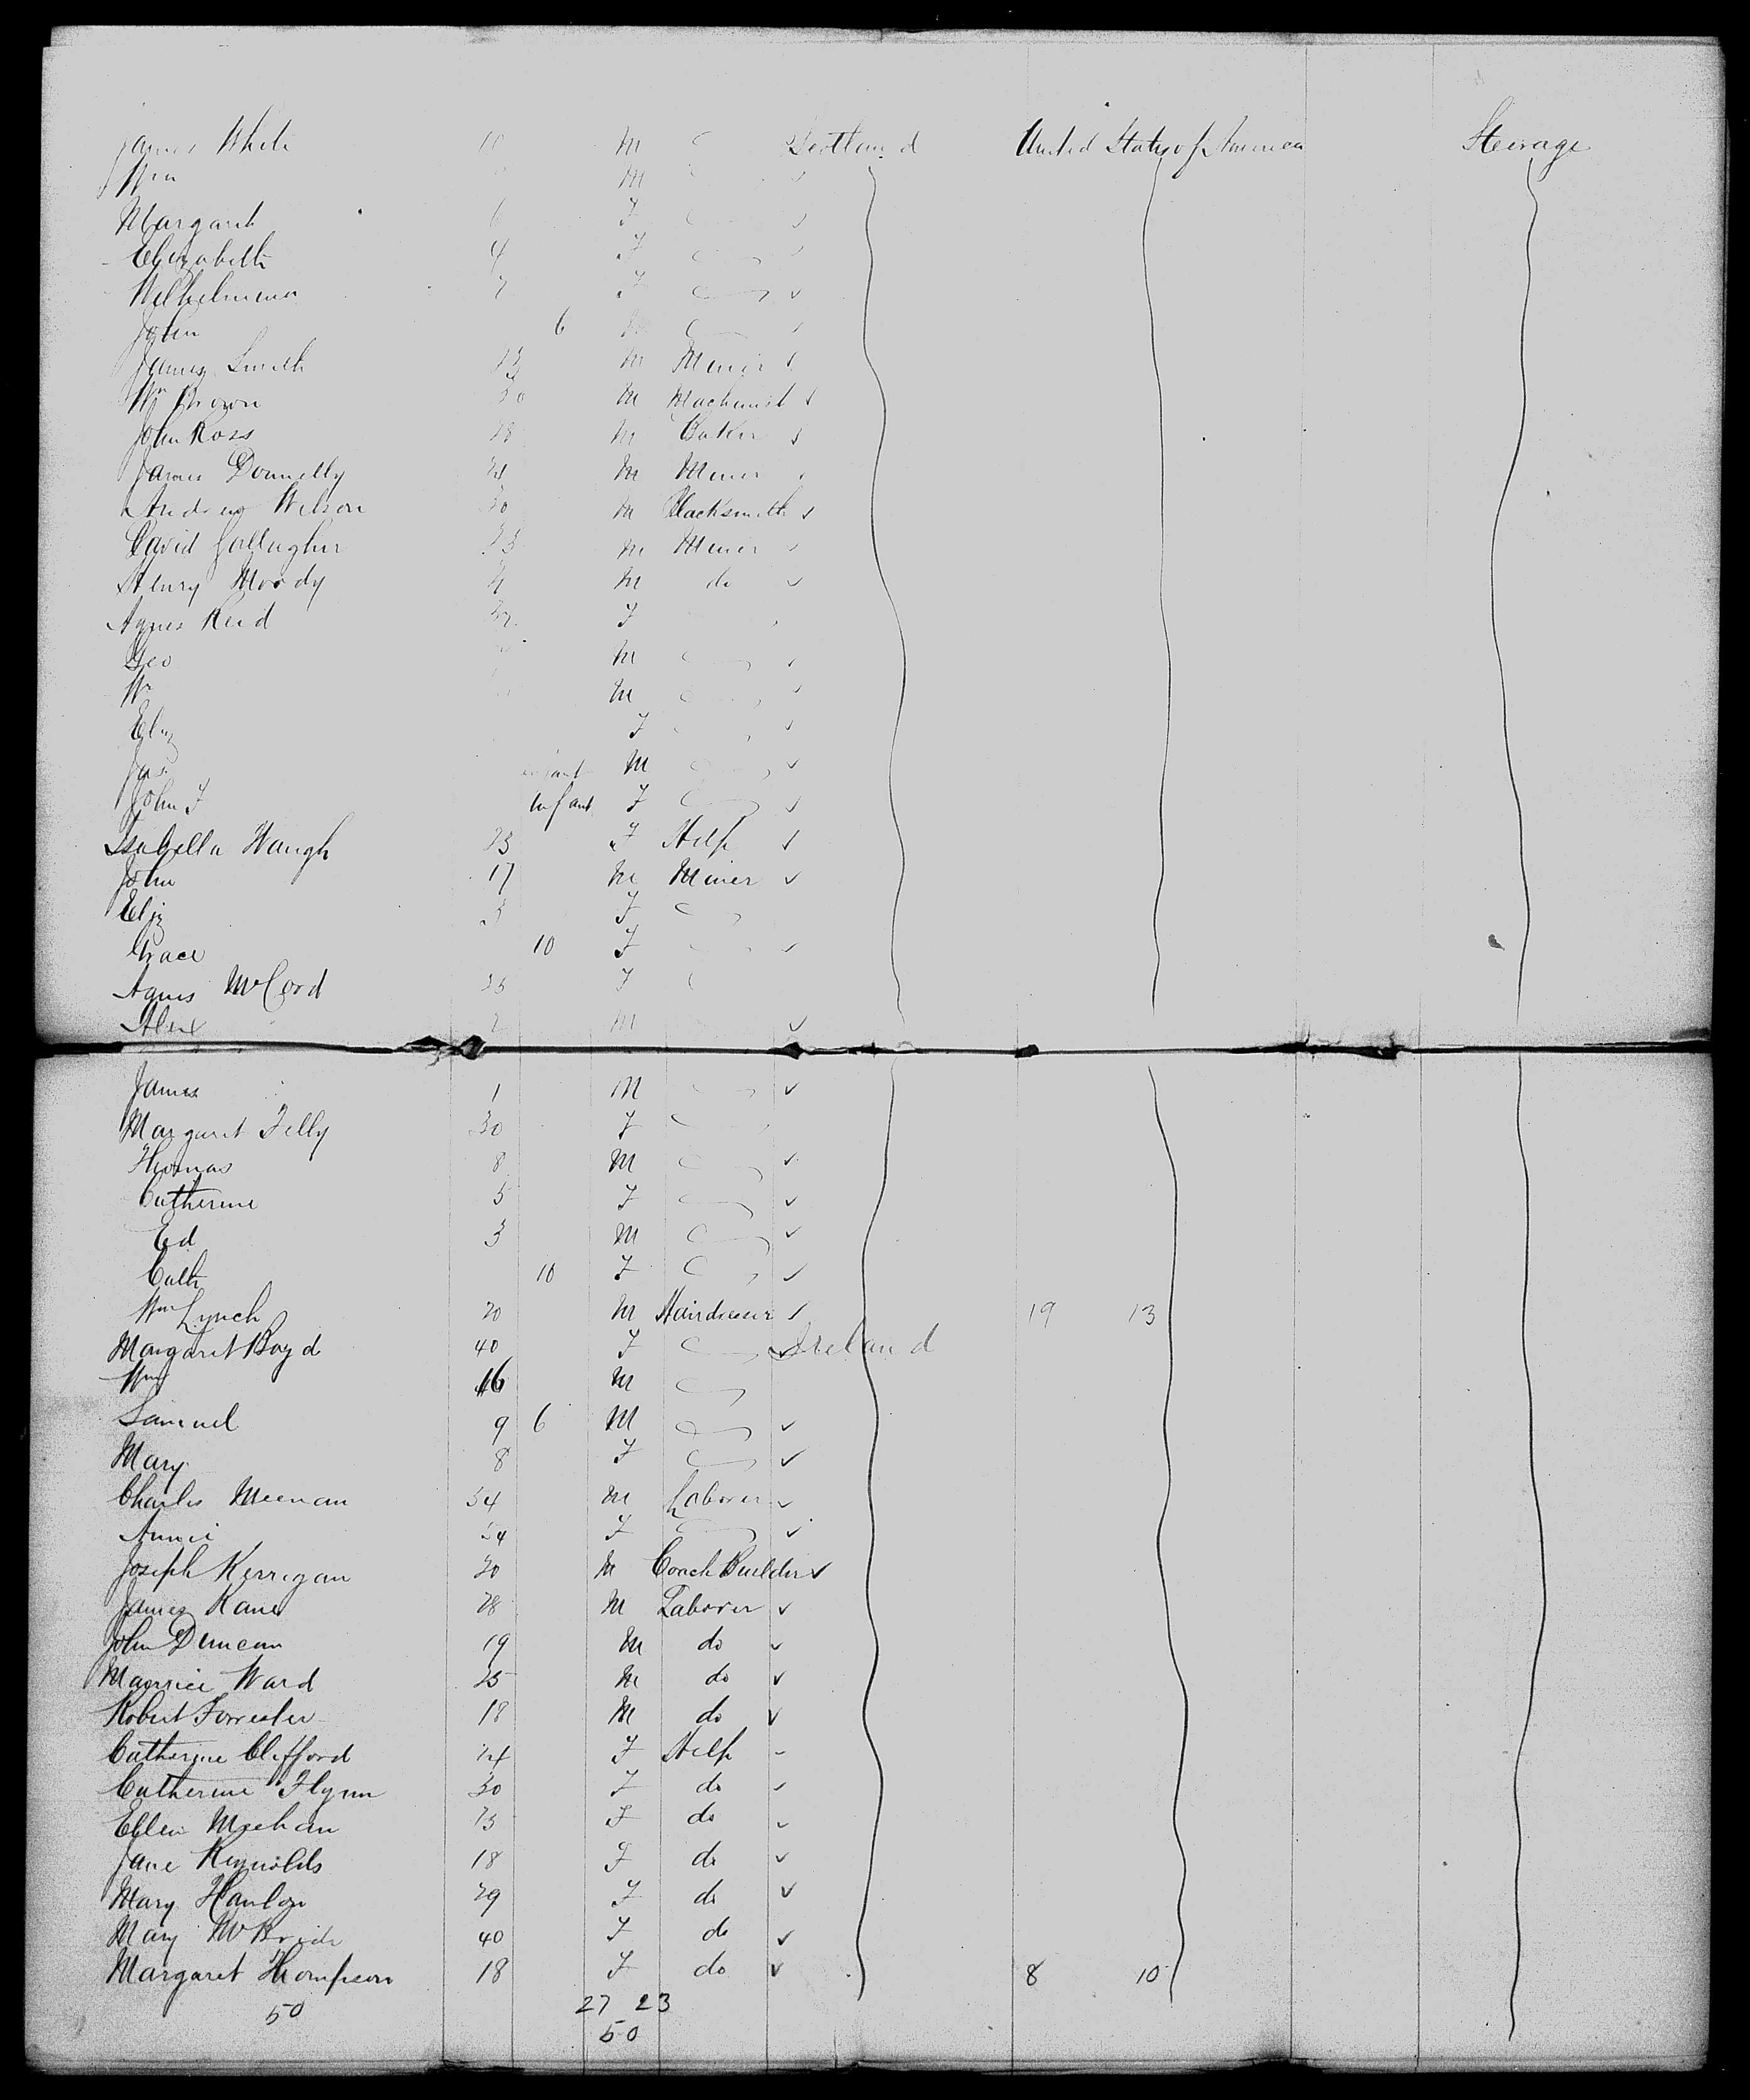 James White M Scotland United States of America Steerage
Wm M
Margaret F
Elizabeth 4 F
Wilhelmina F
John 6
James Smith M Miner
Wm Brown 30 M Machinist
John Ross 28 M Baker
James Donnelly M Miner
Andrew Wilson 30 M Blacksmith
David Gallagher 23 M Miner
Henry Moody M do
Agnes Reid F
Geo M
Wm M
Eliz F
Jas infant M
John F Infant F
Isabella Waugh 23 F Help
John 17 M Miner
Eliz 3 F
Grace 10 F
Agnes McCord 35 F
Alex 2 M
James 1 M
Margaret Filly 30 F
Thomas 8 M
Catherine 5 F
Ed 3 M
Cath 10 F
Wm Lynch 20 M Hairdresser 19 13
Margaret Boyd 40 F Ireland
Wm 16 M
Samuel 9 6 M
Mary 8 F
Charles Meenan 54 M Laborer
Annie 54 F
Joseph Kerrigan 20 M Coach Builder
James Kane 28 M Laborer
John Duncan 19 M do
Maurice Ward 25 M do
Robert Forrester 18 M do
Catherine Clifford 24 F Help
Catherine Flynn 30 F do
Ellen Meehan F do
Jane Reynolds 18 F do
Mary Hanlon 29 F do
Mary McBride 40 F do
Margaret Thompson 18 F do 8 10
50 27 23
50